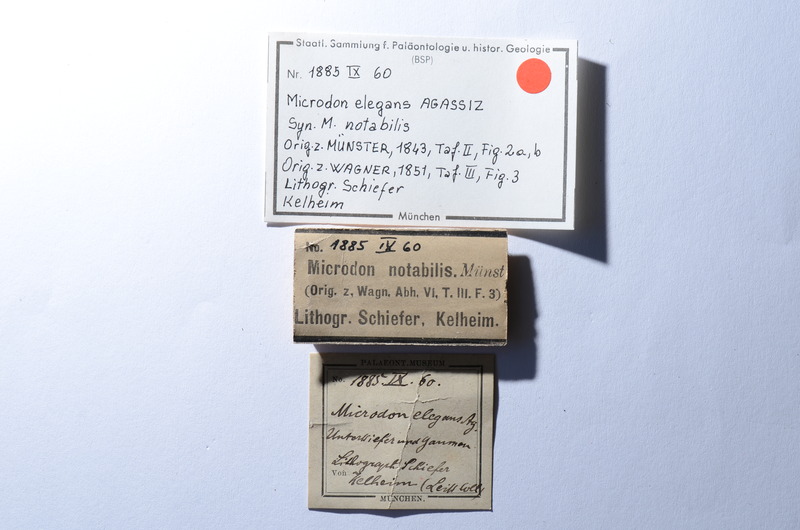 Staatl. Sammlung f. Paläontologie u. histor. Geologie
(BSP)
Nr. 1885 IX 60
Microdon elegans AGASSIZ
Syn. M. notabilis
Orig. z. MÜNSTER, 1843, Taf. II, Fig. 2a, b
Orig. z. WAGNER, 1851, Taf. III, Fig. 3
Lithogr. Schiefer
Kelheim
München
No. 1885 IX 60
Microdon notabilis. Münst
(Orig. z, Wagn. Abh. VI, T. III. F. 3)
Lithogr. Schiefer, Kelheim.
PALAEONT. MUSEUM
No. 1885 IX. 60.
Microdon elegans Ag.
Unterkiefer und Gaumen
Lithograph. Schiefer
Von Kelheim (
MÜNCHEN.